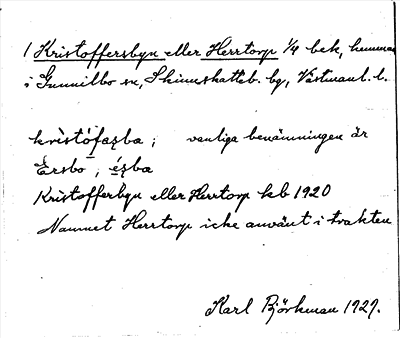 1 Kristoffersbyn eller Herrtorp 1/4 bek, hemman
i Gunnilbo sn, Skinnskatteb. bg, Västmanl. l.
kristófaşba; vanliga benämningen är
Ersbo; éşba
Kristofferbyn eller Herrtorp kb 1920
Namnet Herrtorp icke använt i trakten
Karl Björkman 1929.